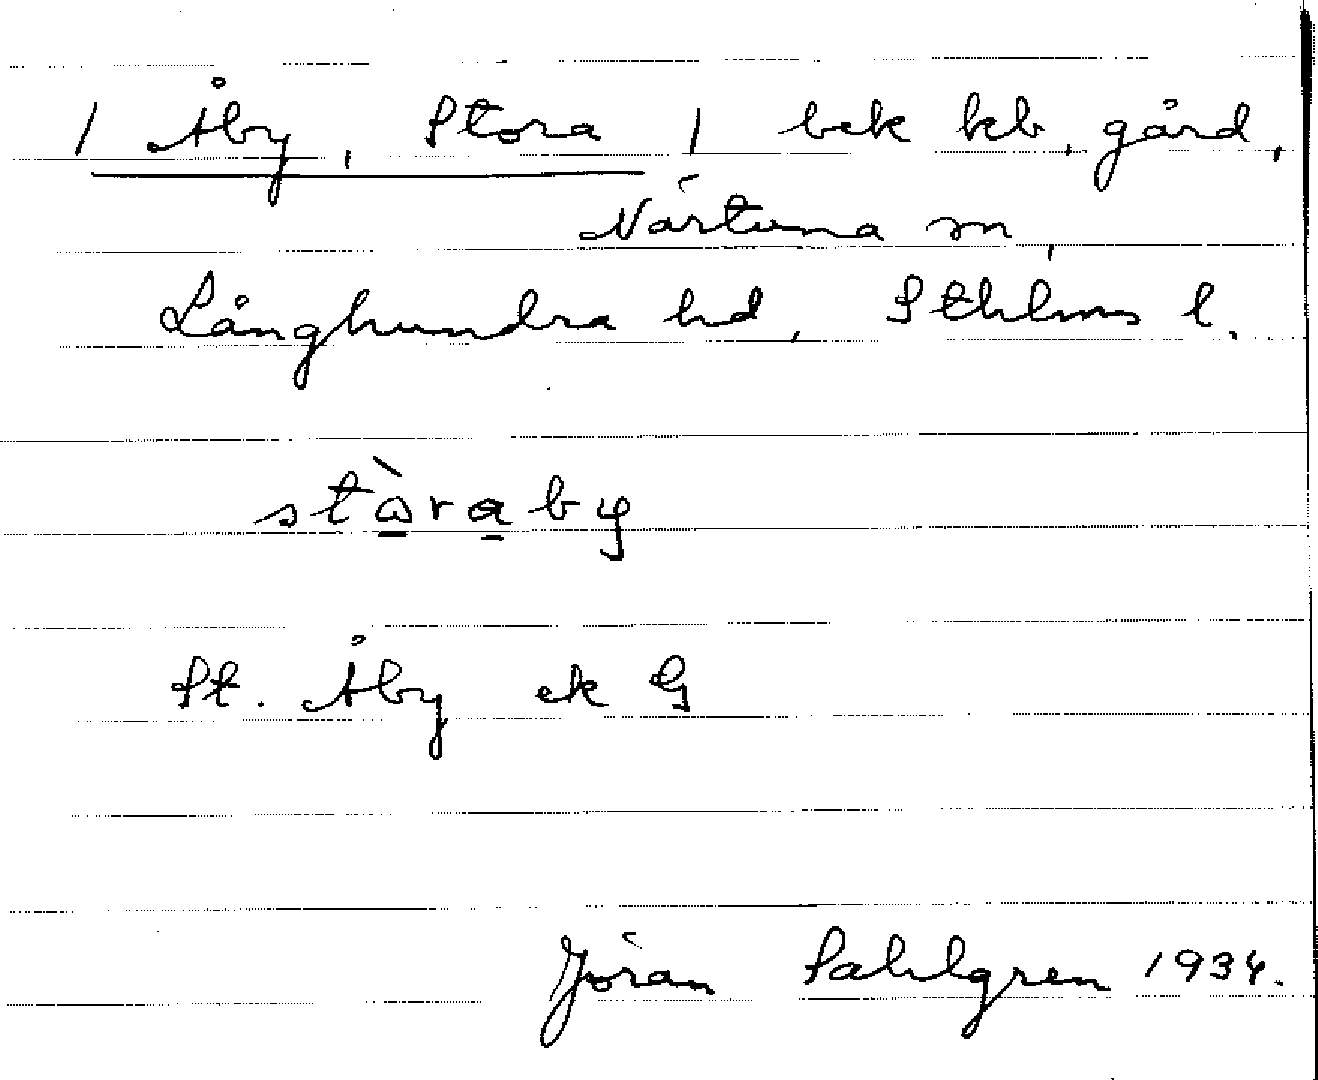 / Åby, Stora / bek kb, gård,
Närtuna sn,
Långhundra hd, Sthlms l.
stὼraby
St. Åby ek G
Jöran Sahlgren 1934.